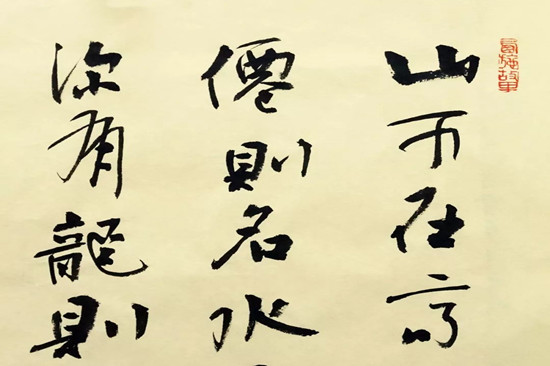 山不在高
僊則名水
深有龍則